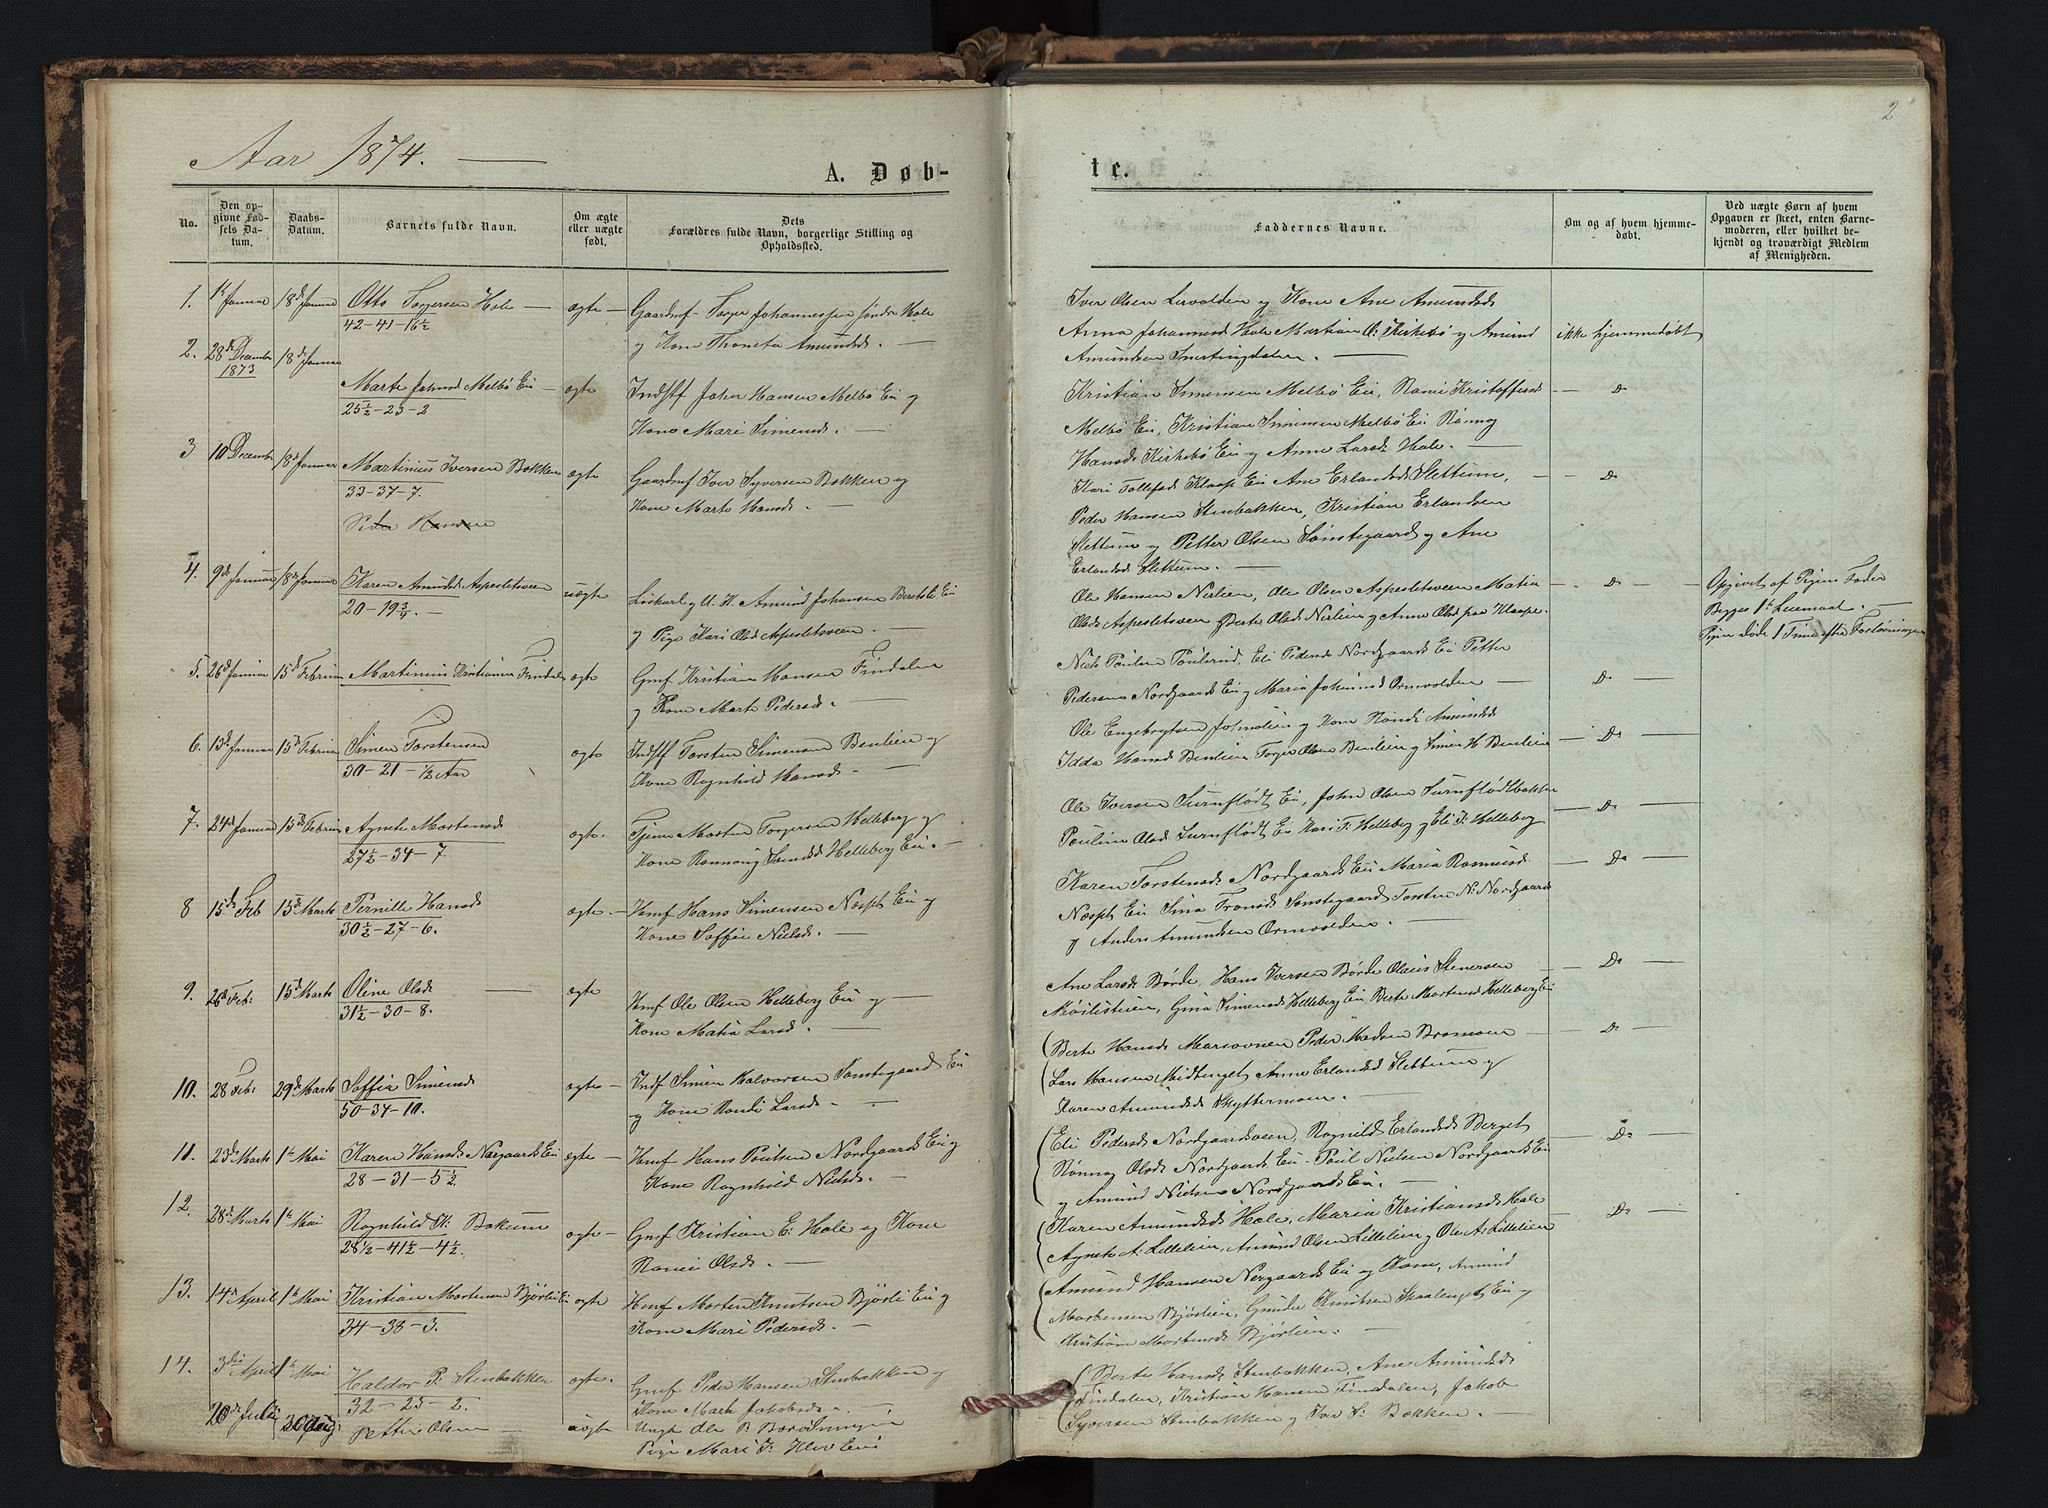 2
Aar 1874. —
A. Døb-
te.
No.
Den op-
givne Fød-
sels Da-
tum.
Daabs-
Datum.
Barnets fulde Navn.
Om ægte
eller uægte
født.
Dets
Forældres fulde Navn, borgerlige Stilling og
Opholdssted.
Faddernes Navne.
Om og af hvem hjemme-
døbt.
Ved uægte Børn af hvem
Opgaven er skeet, enten Barne-
moderen, eller hvilket be-
kjendt og troværdigt Medlem
af Menigheden.
1. 1te Januar 18de Januar Otto Torgersen Hole — ægte —
42-41-16½
Gaardmf. Torger Johannessen søndre Hole
og Kone Thoneta Amundsd. —
Iver Olsen Lervolden og Kone Ane Amundsd
Anna Johannesd Hole Martian O: Kirkebø og Amund
Amundsen Snertingdalen. —
ikke hjemmedøbt
2. 28de Decembr 1873 18de Januar
Marte Johnsd Melbø Ei — ægte
25½-23-2
Indstf John Hansen Melbø Ei og
Kone Mari Simensd. —
Kristian Simensen Melbø Ei, Rani Kristoffersd — Do
Melbø Ei, Kristian Simensen Melbø Ei Rønnog
Hansd Kirkebø Ei og Anne Larsd Hole. —
3 10 Decembr 18de Januar Martinius Iversen Bakken ægte
33-37-7.
Peder Hansen
Gaardmf Iver Syversen Bakken og
Kone Marte Hansd. —
Kari Tollefsd Klaap Ei Ane Erlandsd Slettum, — Do
Peder Hansen Stenbakken, Kristian Erlandsen
Slettum og Petter Olsen Sønstegaard og Ane
Erlandsd Slettum. —
4. 9de Januar 18de Januar Karen Amundsd Aspesletsveen uægte
20-19¾ —
Leskarl og U. K. Amund Johansen Ei
og Pige Kari Olsd Aspesletsveen. —
Ole Hansen Nerlien, Ole Olsen Aspesletsveen Matia — Do —
Olsd Aspesletsveen Berte Olsd Nerlien og Anne Olsd paa Klaape.
Opgivet af Pigens Fader
Begges 1te Leiermaal. —
Pigen døde 1 Time efter Forløsningen
5. 26de Januar 15de Februar Martinius Kristiansen Findalen ægte
Gmf Kristian Hansen Findalen
og Kone Marte Pedersd. —
Niels Poulsen Poulsrud, Eli Pedersd Nordgaards Ei Petter
Pedersen Nordgaards Ei og Maria Johansd Ormvolden — Do —
6. 13de Januar 15de Februar Simen Torstensen ægte
30-21-½ Aar
Indstf Torsten Simensen Benlien og
Kone Rognhild Hansd. —
Ole Engebrigtsen og Kone Randi Amundsd
Idda Hansd Benlien Torger Olsen Benlien og Simen H Benlien — Do —
7. 24de Januar 15de Februar Agnete Mortensd ægte.
27½-34-7.
Tjener Morten Torgersen Helleberg og
Kone Rannoug Svendsd Helleberg Ei. —
Ole Iversen Surnflødt Ei, John Olsen Surnflødtbakken
Pauline Olsd Surnflødt Ei Kari T: Helleberg og Eli T: Helleberg — Do —
8 15de Feb 15de Marts Pernille Hansd ægte. —
30½-27-6.
Hmf Hans Simensen Næspet Ei og
Kone Soffie Nielsd. —
Karen Torstensd Nordgaards Ei Maria Rasmusd — Do —
Næspet Ei Sina Tronsd Sønstegaard Torsten N: Nordgaards
og Anders Amundsen Ormvolden. —
9. 26de Feb: 15de Marts Oline Olsd — ægte
31½-30-8.
Hmf Ole Olsen Helleberg Ei og —
Kone Matia Larsd. —
Ane Larsd Børde, Hans Iversen Børde Olaus Stenersen — Do —
Mæilistuen, Gina Simensd Helleberg Ei Berte Mortensd Helleberg Ei
10. 28 Feb: 29de Marts Soffia Simensd ægte —
50-34-10.
Indf Simen Halvorsen Sønstegaard Ei
og Kone Randi Larsd —
Berte Hansd Peder Madsen Bromoen — Do —
Lars Hansen Midtenget Anne Erlandsd Slettum og
Karen Amundsd Skyttermoen. —
11. 23de Marts 1te Mai Karen Hansd Norgaards Ei ægte —
28-31-5½.
Hmf Hans Poulsen Nordgaards Ei og
Kone Rognhild Nielsd. —
Eli Pedersd Nordgaardsveen, Rognild Erlandsd Berget — Do —
Rønnog Olsd Nordgaards Ei — Poul Nielsen Nordgaards Ei
og Amund Nielsen Nordgaards Ei. —
12. 28de Marts 1te Mai Rognhild K: Bakum ægte —
28½-41½-4½.
Gmf Kristian E: Hole og Kone
Ranei Olsd. —
Karen Amundsd Hole, Maria Kristiansd Hole — Do —
Agnete A: Lillelien, Amund Olsen Lillelien og Ole A: Lillelien
13. 14de April 1te Mai Kristian Mortensen Bjørli Ei ægte
34-38-3.
Hmf Morten Knutsen Bjørli Ei og
Kone Mari Pedersd. —
Amund Hansen Norgaards Ei og Kone, Amund
Mortensen Bjørlien, Gunder Knutsen Skaalenget Ei og
Kristian Mortensd Bjørlien. —
14. 3die April 1te Mai Haldor P: Stenbakken ægte.
32-23-2.
Gmf Peder Hansen Stenbakken og
Kone Marte Jakobsd. —
Berte Hansd Stenbakken, Ane Amundsd
Findalen, Kristian Hansen Findalen, Jakob
Syversen Stenbakken og Iver S: Bakken.
20de Juli 30 Aug: Petter Olsen — uægte
Ungk Ole P.
Pige Mari T: